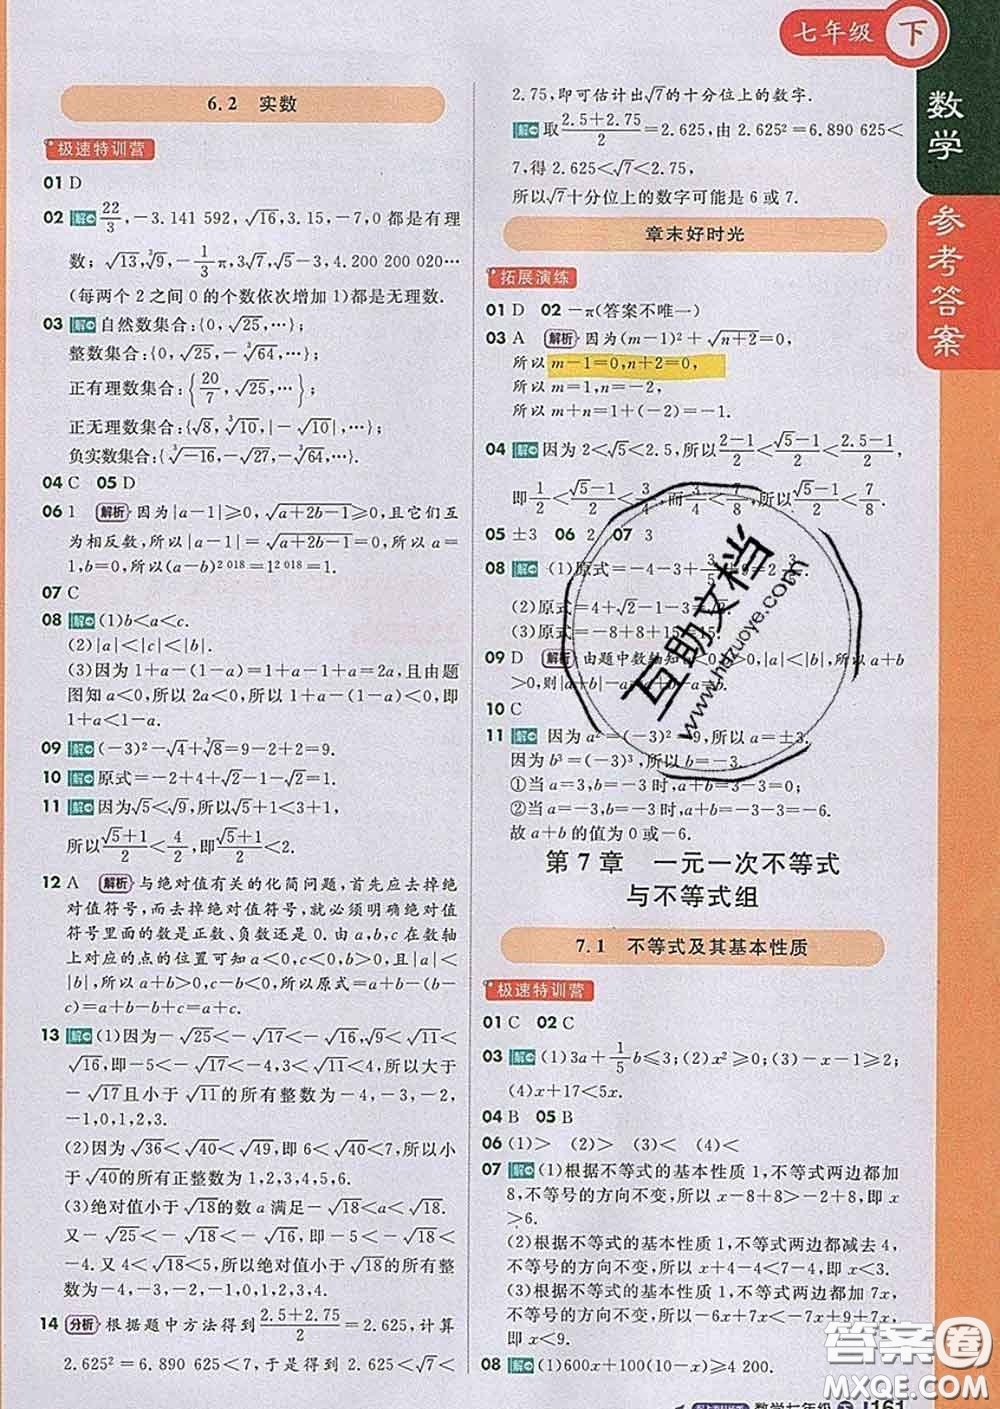 七年级 下
数学
参考答案
6.2 实数
极速特训营
01 D
02 解 22/3,-3.141 592,√16,3.15,-7,0 都是有理
数;√13,³√9,-1/3π,3√7,√5,4.200 200 020…
(每两个 2 之间 0 的个数依次增加 1)都是无理数.
03 解 自然数集合:{0,√25,…};
整数集合:{0,√25,-³√64,…};
正有理数集合:{20/7,√25,…};
正无理数集合:{√8,³√10,|-√10|,…};
负实数集合:{³√-16,-√27,-³√64,…}.
04 C 05 D
06 1 解析 因为|a-1|≥0,√a+2b-1≥0,且它们互
为相反数,所以|a-1|=√a+2b-1=0,所以 a=
1,b=0,所以(a-b)^2 018=1^2 018=1.
07 C
08 解 (1)b<a<c.
(2)|a|<|c|<|b|.
(3)因为 1+a-(1-a)=1+a-1+a=2a,且由题
图知 a<0,所以 2a<0,所以 1+a-(1-a)<0,即
1+a<1-a.
09 解 (-3)²-√4+³√8=9-2+2=9.
10 解 原式=-2+4+√2-1-√2=1.
11 解 因为√5<√9,所以√5+1<3+1,
所以(√5+1)/2<4/2,即(√5+1)/2<2.
12 A 解析 与绝对值有关的化简问题,首先应去掉绝
对值符号,而去掉绝对值符号,就必须明确绝对值符
号里面的数是正数、负数还是 0. 由 a,b,c 在数轴
上对应的点的位置可知 a>0,b<0,c<0,|a|<
|b|,所以 a+b>0,c-b<0,所以原式=a+b-(b-
c)=a+b-b+c=a+c.
13 解 (1)因为-√25<-√17<-√16,√9<√11<
√16,即-5<-√17<-4,3<√11<4,所以大于
-√17且小于√11的所有整数为-4,-3,-2,
-1,0,1,2,3.
(2)因为√36<√40<√49,即 6<√40<7,所以小于
√40的所有正整数为 1,2,3,4,5,6.
(3)绝对值小于√18的数 a 满足-√18<a<√18.
又-√25<-√18<-√16,即-5<-√18<
-4. 又 4<√18<5,所以绝对值小于√18的所有整
数为-4,-3,-2,-1,0,1,2,3,4.
14 分析 根据题中方法得到(2.5+2.75)/2=2.625,计算
2.625²=6.890 625<7,于是得到 2.625<√7<
2.75,即可估计出√7的十分位上的数字.
解 取(2.5+2.75)/2=2.625,由 2.625²=6.890 625<
7,得 2.625<√7<2.75.
所以√7十分位上的数字可能是 6 或 7.
章末好时光
拓展演练
01 D 02 -π(答案不唯一)
03 A 解析 因为(m-1)²+√n+2=0,
所以 m-1=0,n+2=0,
所以 m=1,n=-2,
所以 m+n=1+(-2)=-1.
04 解 因为 2<√5<2.5,所以(2-1)/2<(√5-1)/2<(2.5-1)/2,
即1/2<(√5-1)/2<3/4,而3/4<7/8,所以(√5-1)/2<7/8.
05 ±3 06 2 07 3
08 解 (1)原式=-4-3+3/5+9=2
(2)原式=4+√2-1-3=√2.
(3)原式=-8+8+15=15.
09 D 解析 由题中数轴知
>0,则|a+b|-
10 C
11 解 因为 a²=(-3)²=9,所以 a=±3.
因为 b³=(-3)³,所以 b=-3.
①当 a=3,b=-3 时,a+b=3-3=0;
②当 a=-3,b=-3 时,a+b=-3-3=-6.
故 a+b 的值为 0 或-6.
第 7 章 一元一次不等式
与不等式组
7.1 不等式及其基本性质
极速特训营
01 C 02 C
03 解 (1)3a+1/5b≤3;(2)x²≥0;(3)-x-1≥2;
(4)x+17<5x.
04 B 05 B
06 (1)> (2)> (3)< (4)<
07 解 (1)根据不等式的基本性质 1,不等式两边都加
8,不等号的方向不变,所以 x-8+8>-2+8,即 x
>6.
(2)根据不等式的基本性质 1,不等式两边都减去 4,
不等号的方向不变,所以 x+4-4<7-4,即 x<3.
(3)根据不等式的基本性质 1,不等式两边都加 7x,
不等号的方向不变,所以-6x+7x<-7x+9+7x,即
x<9.
08 解 (1)600x+100(10-x)≥4 200.
数学七年级 下 161
互助文档
www.hdzuoye.com
答案圈
MXQE.COM